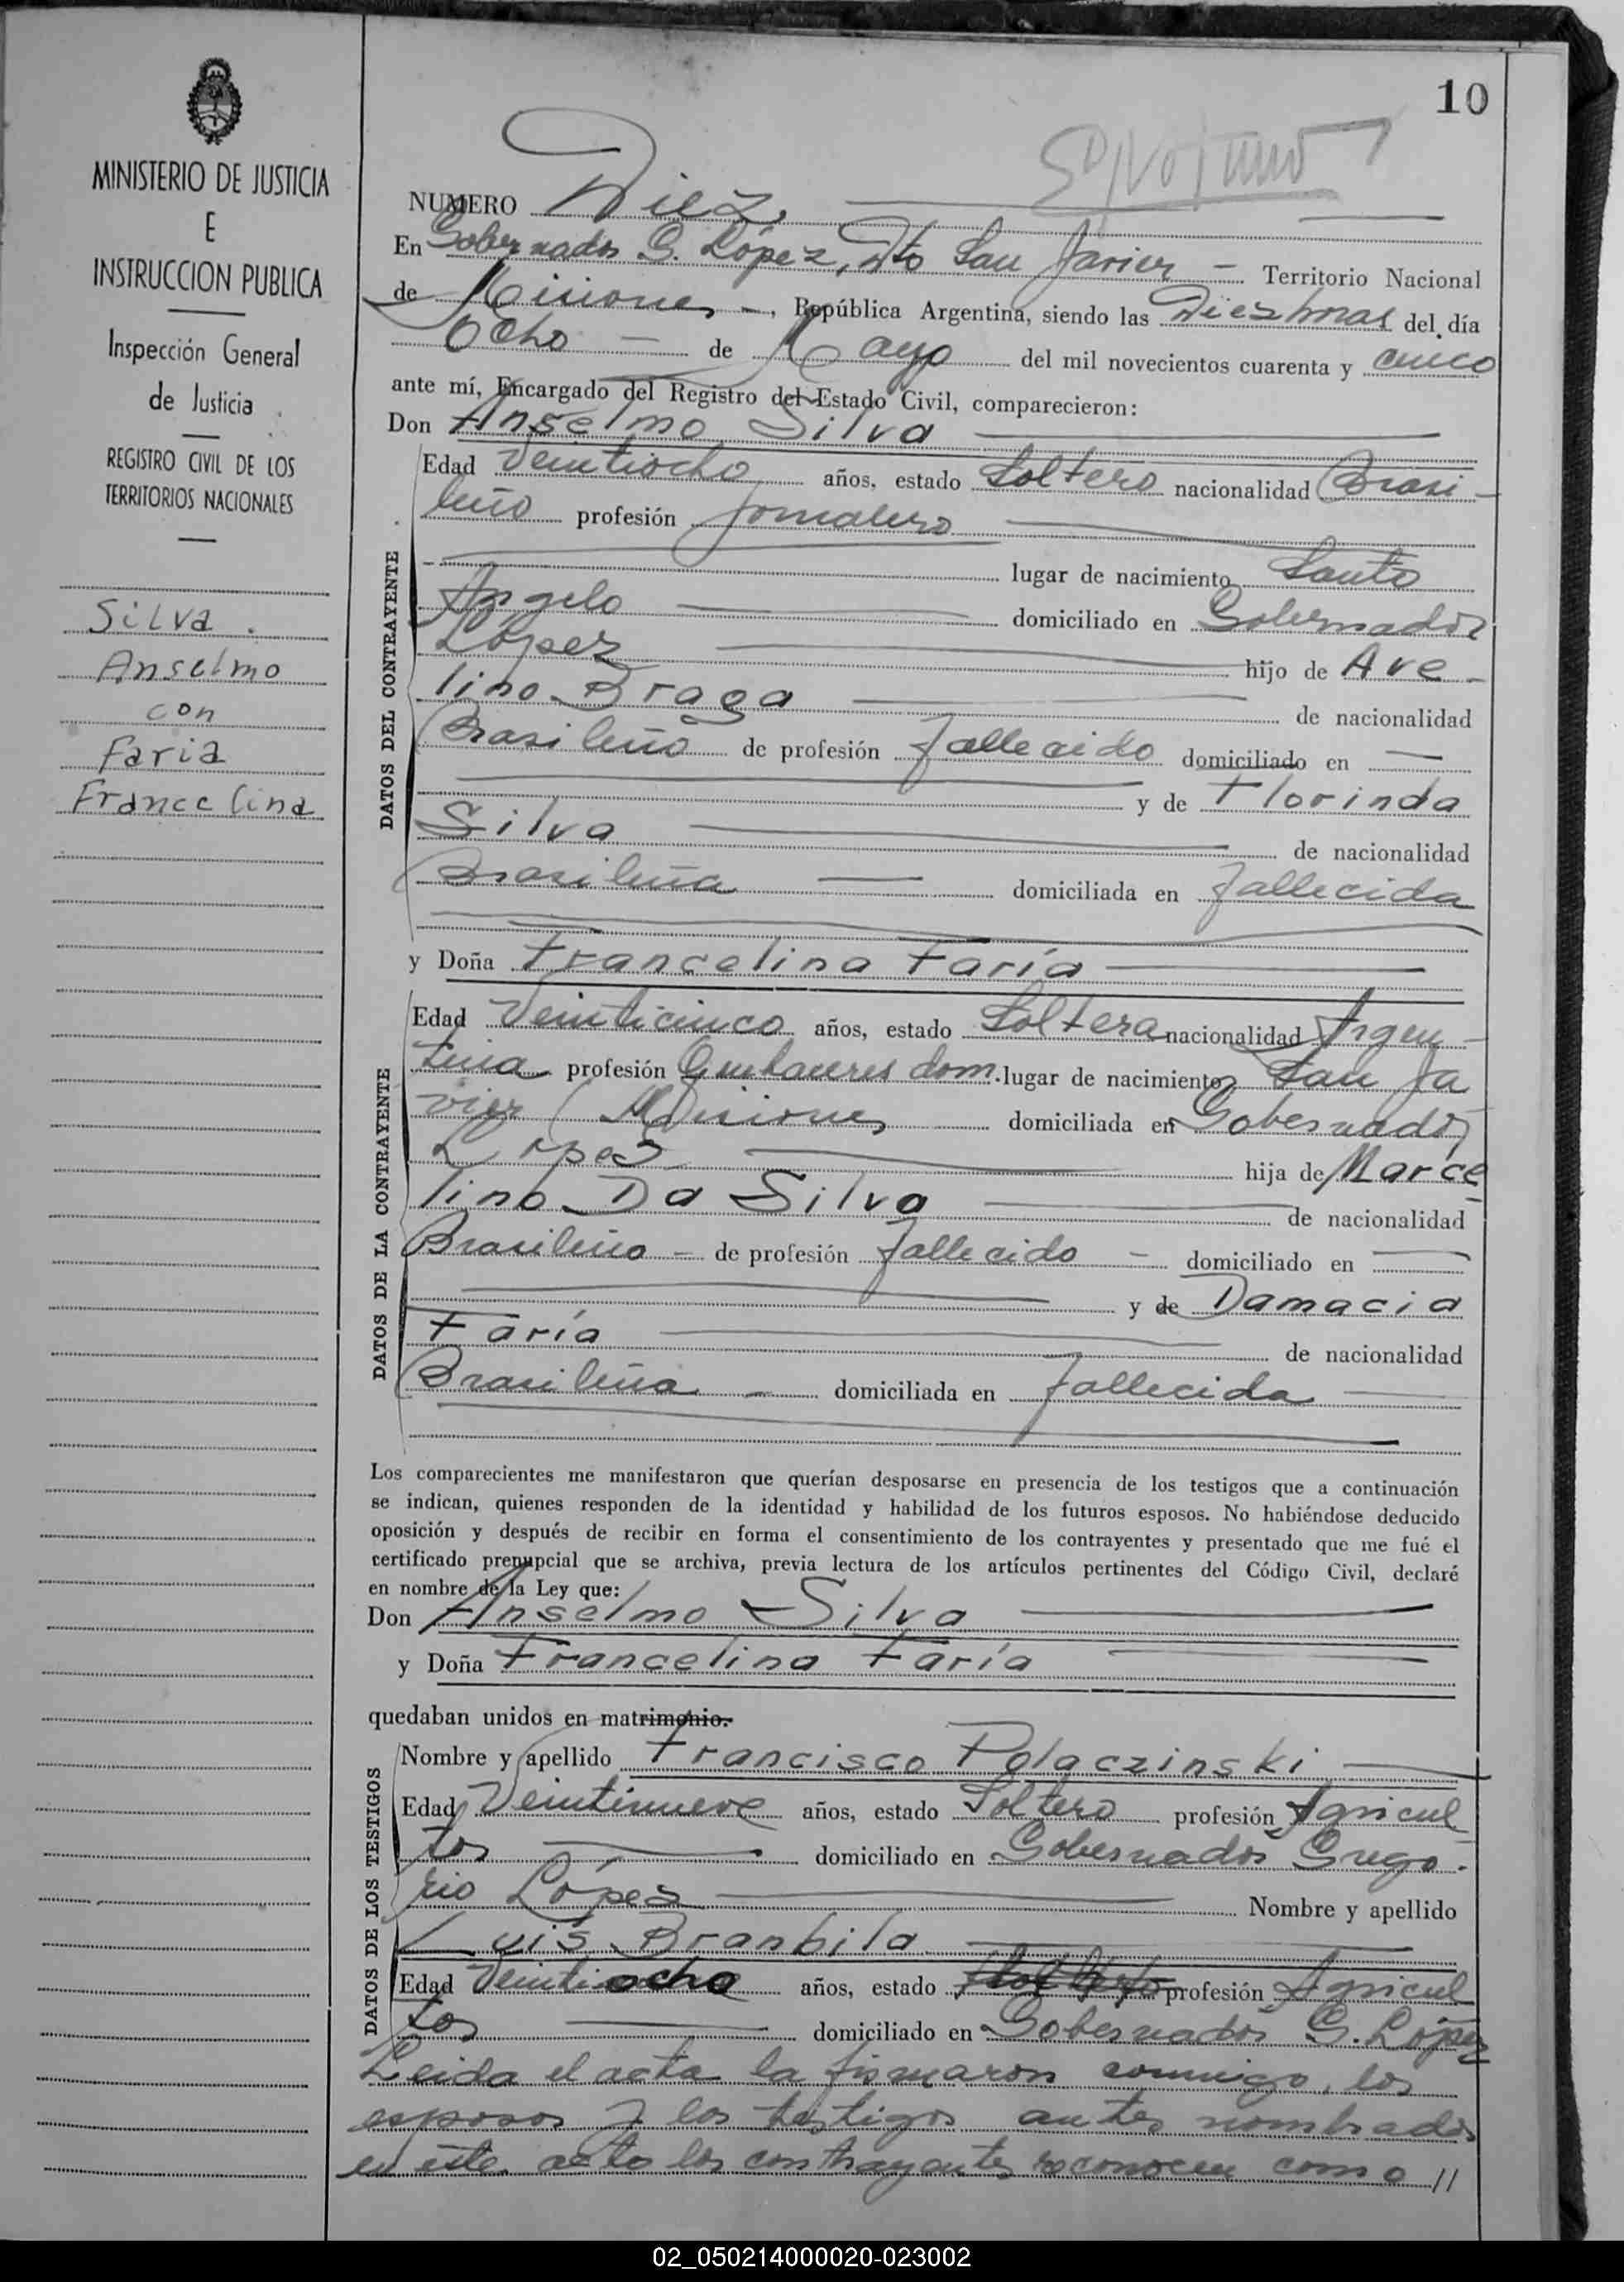 10
MINISTERIO DE JUSTICIA
E
INSTRUCCION PUBLICA
Inspección General
de Justicia
REGISTRO CIVIL DE LOS
TERRITORIOS NACIONALES
Silva
Anselmo
con
Faria
Francelina
NUMERO Diez.
En Gobernador G. López, Dto San Javier - Territorio Nacional
de Misiones -, República Argentina, siendo las Diez horas del día
Ocho - de Mayo del mil novecientos cuarenta y cinco
ante mí, Encargado del Registro del Estado Civil, comparecieron:
Don Anselmo Silva
DATOS DEL CONTRAYENTE
Edad Veintiocho años, estado Soltero nacionalidad Brasi-
leño profesión Jornalero
lugar de nacimiento Santo
Angelo domiciliado en Gobernador
López hijo de Ave-
lino Braga de nacionalidad
Brasileño de profesión fallecido domiciliado en
y de Florinda
Silva de nacionalidad
Brasileña domiciliada en fallecida
y Doña Francelina Faría
DATOS DE LA CONTRAYENTE
Edad Veinticinco años, estado Soltera nacionalidad Argen-
tina profesión Quehaceres dom. lugar de nacimiento San Ja
vier (Misiones domiciliada en Gobernador
Lopez hija de Marce
lino Da Silva de nacionalidad
Brasileño - de profesión fallecido - domiciliado en
y de Damacia
Faría de nacionalidad
Brasileña - domiciliada en fallecida
Los comparecientes me manifestaron que querían desposarse en presencia de los testigos que a continuación
se indican, quienes responden de la identidad y habilidad de los futuros esposos. No habiéndose deducido
oposición y después de recibir en forma el consentimiento de los contrayentes y presentado que me fué el
certificado prenupcial que se archiva, previa lectura de los artículos pertinentes del Código Civil, declaré
en nombre de la Ley que:
Don Anselmo Silva
y Doña Francelina Faría
quedaban unidos en matrimonio.
DATOS DE LOS TESTIGOS
Nombre y apellido Francisco Polaczinski
Edad Veintinueve años, estado Soltero profesión Agricul
tor domiciliado en Gobernador Grego-
rio López Nombre y apellido
Luis Branbila
Edad Veintiocho años, estado profesión Agricul
tor domiciliado en Gobernador G. López
Leida el acta la firmaron conmigo, los
esposos y los testigos antes nombrados
en este acto los contrayentes reconocen como //
02_050214000020-023002